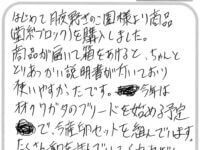 はじめて月夜野きのこ園様より商品
(菌糸ブロック)を購入しました。
商品が届いて箱をあけると、ちゃんと
とりあつかい説明書が入っており
使いやすかったです。今年は
材クワガタのブリードを始める予定
で、今産卵セットを組んでいます。